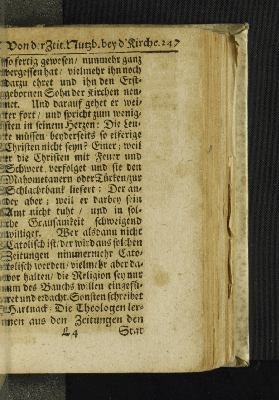 Von der Zeit. Nutzb. bey d' Kirche. 247
so fertig gewesen / nunmehr gantz
vergessen hat / vielmehr ihn noch
darzu ehret und ihn den Erst-
gebornen Sohn der Kirchen nen-
net. Und darauf gehet er wei-
ter fort / und spricht zum wenig-
sten in seinem Hertzen: Die Leu-
te müssen beyderseits so eiferige
Christen nicht seyn? Einer; weil
er die Christen mit Feuer und
Schwert verfolget und sie den
Mahometanern oder Türken / zur
Schlachtbank liefert: Der an-
der aber; weil er darbey sein
Amt nicht tuht / und in sol-
che Grausamkeit schweigend
williget. Wer alsdann nicht
Catolisch ist / der wird aus solchen
Zeitungen nimmermehr Cato-
tolisch werden / vielmehr aber da-
vor halten / die Religion sey nur
um des Bauchs willen eingefü-
ret und erdacht. Sonsten schreibet
Hartnack: Die Theologen ler-
nen aus den Zeitungen den
L 4 Stat